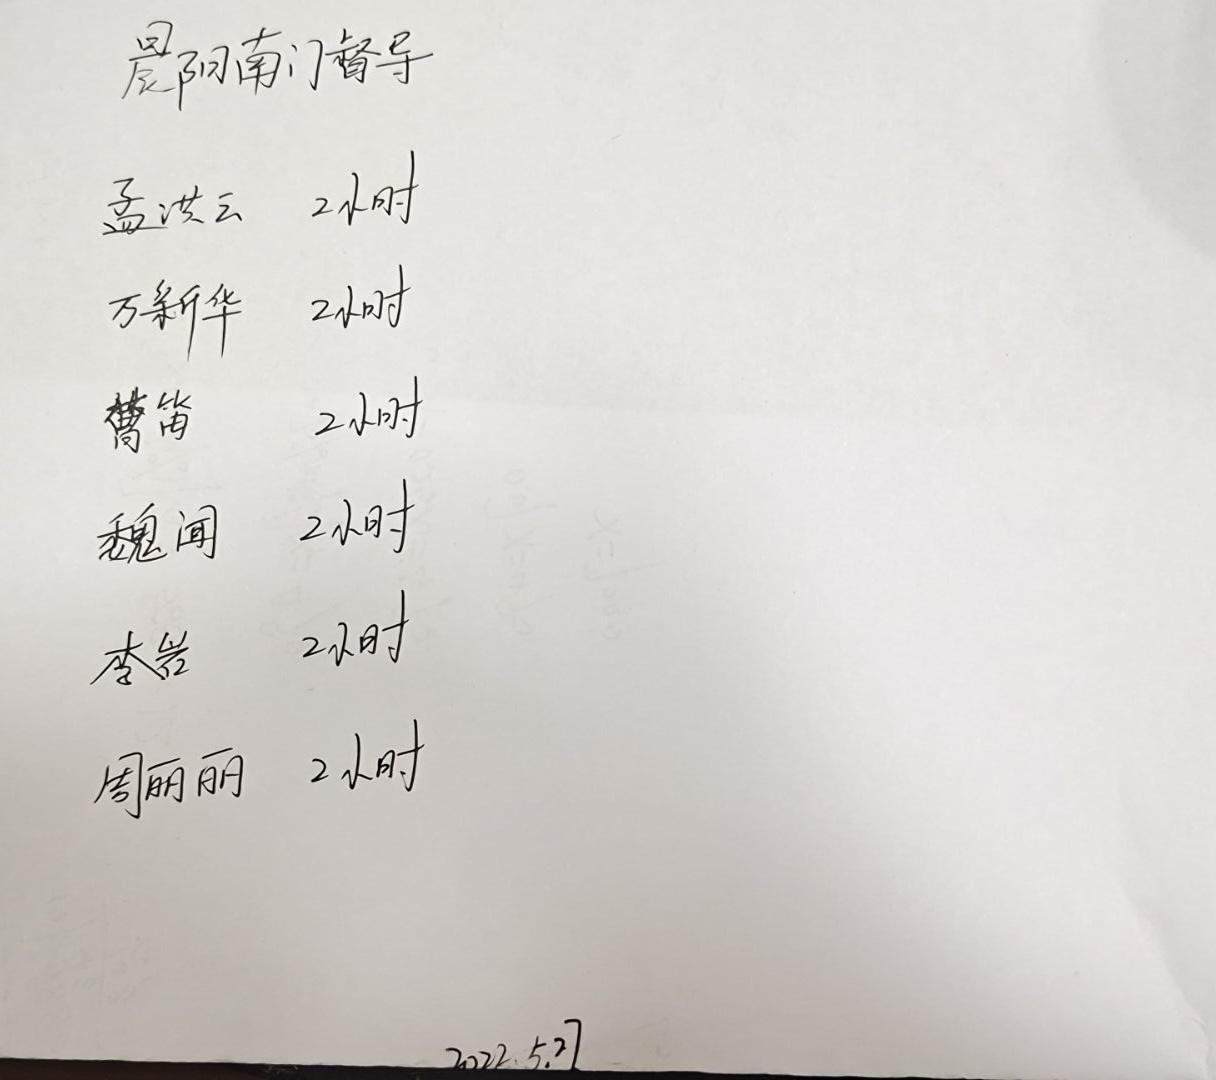 晨阳南门督导
孟洪云 2小时
万新华 2小时
曹笛 2小时
魏闻 2小时
李岩 2小时
周丽丽 2小时
2022.5.27